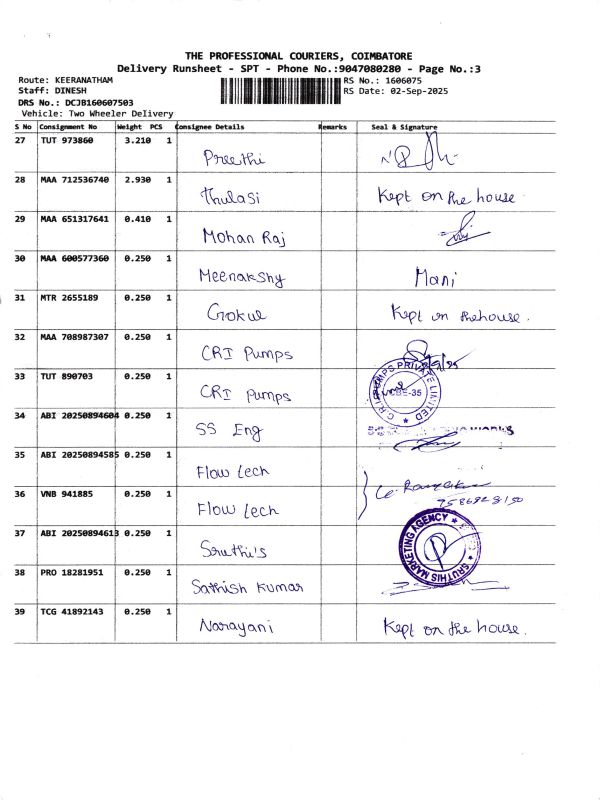 THE PROFESSIONAL COURIERS, COIMBATORE
Delivery Runsheet - SPT - Phone No.:9047080280 - Page No.:3
Route: KEERANATHAM RS No.: 1606075
Staff: DINESH RS Date: 02-Sep-2025
DRS No.: DCJB160607503
Vehicle: Two Wheeler Delivery
S No Consignment No Weight PCS Consignee Details Remarks Seal & Signature
27 TUT 973860 3.210 1 Preethi
28 MAA 712536740 2.930 1 Thulasi Kept on the house
29 MAA 651317641 0.410 1 Mohan Raj
30 MAA 600577360 0.250 1 Meenakshy Mani
31 MTR 2655189 0.250 1 Gokul Kept on the house.
32 MAA 708987307 0.250 1 CRI Pumps
33 TUT 890703 0.250 1 CRI Pumps C.R.I. PUMPS PRIVATE LIMITED CBE-35
34 ABI 20250894604 0.250 1 SS Eng
35 ABI 20250894585 0.250 1 Flow tech
36 VNB 941885 0.250 1 Flow tech
37 ABI 20250894613 0.250 1 Sruthi's SRUTHIS MARKETING AGENCY
38 PRO 18281951 0.250 1 Sathish Kumar
39 TCG 41892143 0.250 1 Narayani Kept on the house.